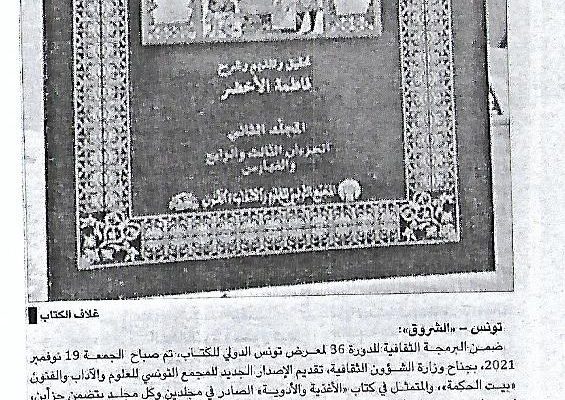 تحقيق وتقديم وشرح
فاطمة الأخضر
المجلد الثاني
الجزءان الثالث والرابع
والفهارس
المجمع التونسي للعلوم والآداب والفنون
غلاف الكتاب
تونس – «الشروق»:
ضمن البرمجة الثقافية للدورة 36 لمعرض تونس الدولي للكتاب، تم صباح الجمعة 19 نوفمبر
2021، بجناح وزارة الشؤون الثقافية، تقديم الإصدار الجديد للمجمع التونسي للعلوم والآداب والفنون
«بيت الحكمة»، والمتمثل في كتاب «الأغذية والأدوية» الصادر في مجلدين وكل مجلد يتضمن جزأين،